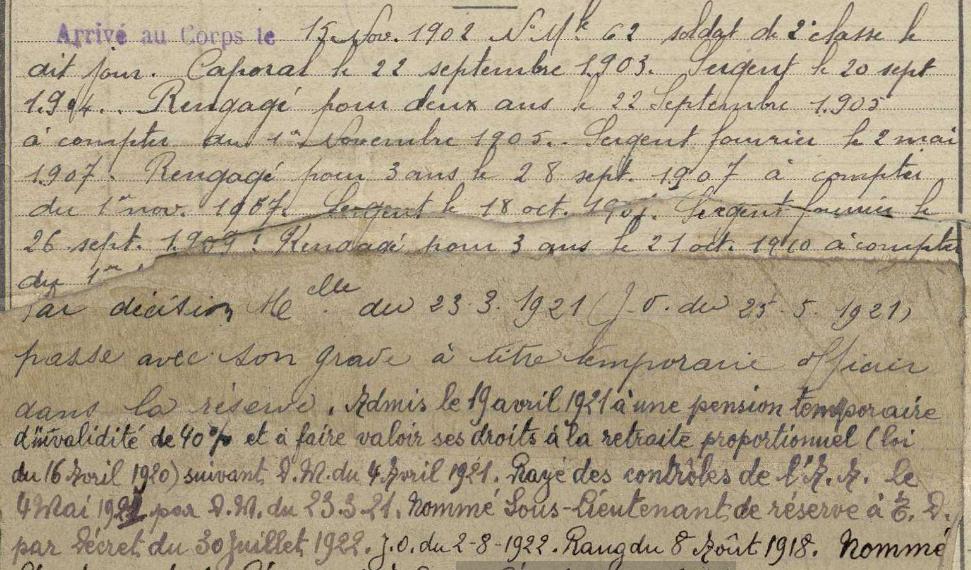 Arrivé au Corps le 15 Nov. 1902 N° Mle 62 soldat de 2e classe le
dit jour. Caporal le 22 septembre 1903. Sergent le 20 sept
1904. Rengagé pour deux ans le 22 Septembre 1905
à compter du 1er Novembre 1905. Sergent fourrier le 2 mai
1907. Rengagé pour 3 ans le 28 sept. 1907 à compter
du 1er nov. 1907. Sergent le 18 oct. Sergent fourrier le
26 sept. 1909. Rengagé pour 3 ans le 21 oct. 1910 à compter
du 1er
Par décision Melle du 23.3.1921 (J.O. du 25-5.1921)
passe avec son grade à titre temporaire officier
dans la réserve. Admis le 19 avril 1921 à une pension temporaire
d'invalidité de 40% et à faire valoir ses droits à la retraite proportionnel (loi
du 16 Avril 1920) suivant D.M. du 4 Avril 1921. Rayé des contrôles de l'A.A. le
4 Mai 1921 par D.M. du 23.3.21. Nommé Sous-Lieutenant de réserve à T.D.
par Décret du 30 Juillet 1922. J.O. du 2-8-1922. Rang du 8 Août 1918. Nommé